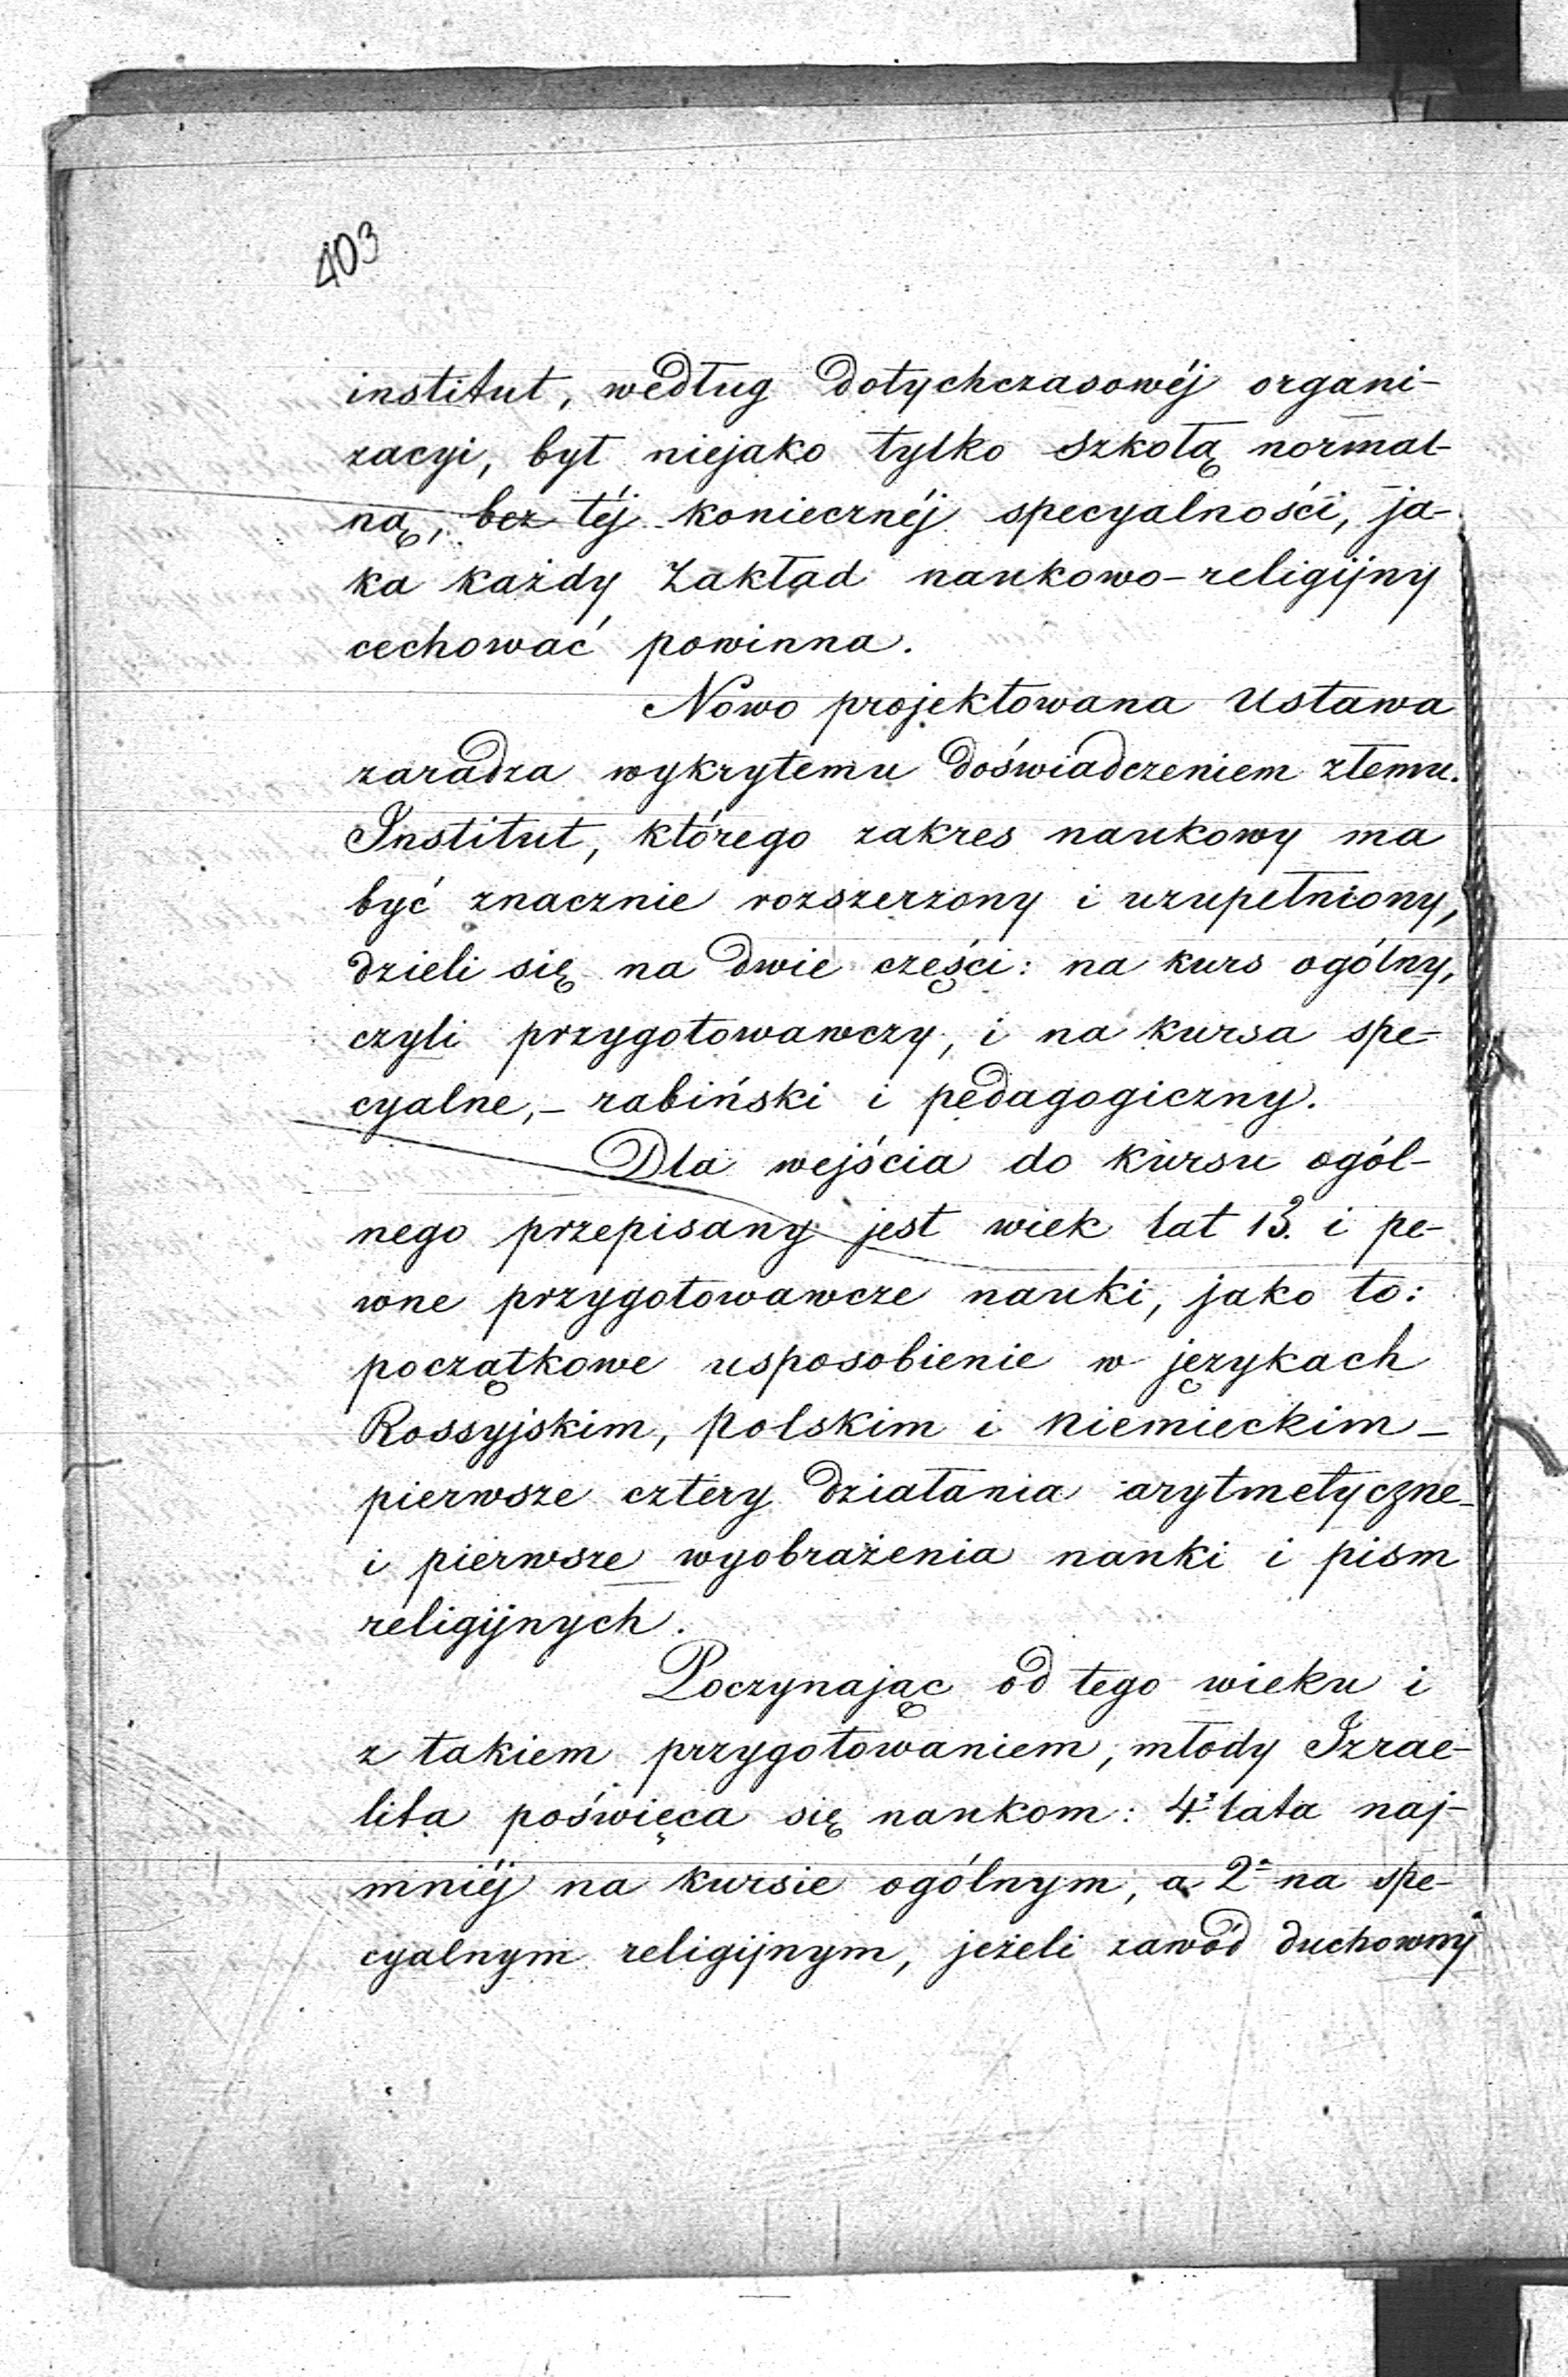 403
institut, według dotychczasowéj organi-
zacyi, był niejako tylko szkołą normal-
ną, bez téj koniecznéj specyalności, ja-
ka każdy Zakład naukowo-religijny
cechować powinna.
Nowo projektowana Ustawa
zaradza wykrytemu doświadczeniem złemu.
Institut, którego zakres naukowy ma
być znacznie rozszerzony i uzupełniony,
dzieli się na dwie części: na kurs ogólny,
czyli przygotowawczy, i na kursa spe-
cyalne,- rabiński i pedagogiczny.
Dla wejścia do kursu ogól-
nego przepisany jest wiek lat 13. i pe-
wne przygotowawcze nauki, jako to:
początkowe usposobienie w językach
Rossyjskim, polskim i niemieckim -
pierwsze cztery działania arytmetyczne -
i pierwsze wyobrażenia nauki i pism
religijnych.
Poczynając od tego wieku i
z takiem przygotowaniem, młody Izrae-
lita poświęca się naukom: 4. lata naj-
mniéj na kursie ogólnym, a 2 na spe-
cyalnym religijnym, jeżeli zawód duchowny